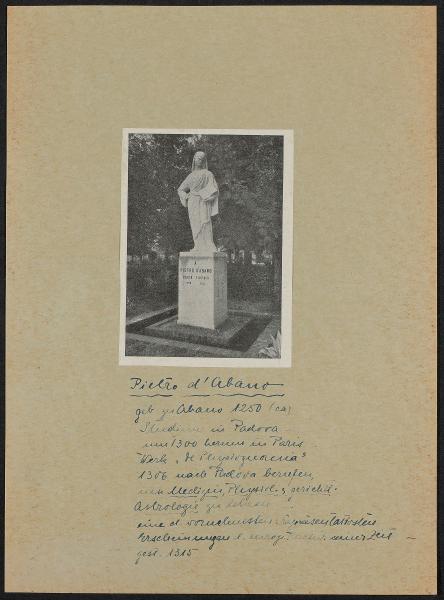 PIETRO D'ABANO
Pietro d'Abano
geb zu Abano 1250 (ca)
Studium in Padova
um 1300 herum in Paris
Werk „De Physiognomia"
1306 nach Padova berufen
um Medizin, Physiol.
Astrologie zu
eine d. vornehmsten
Erscheinungen seiner Zeit
gest. 1315